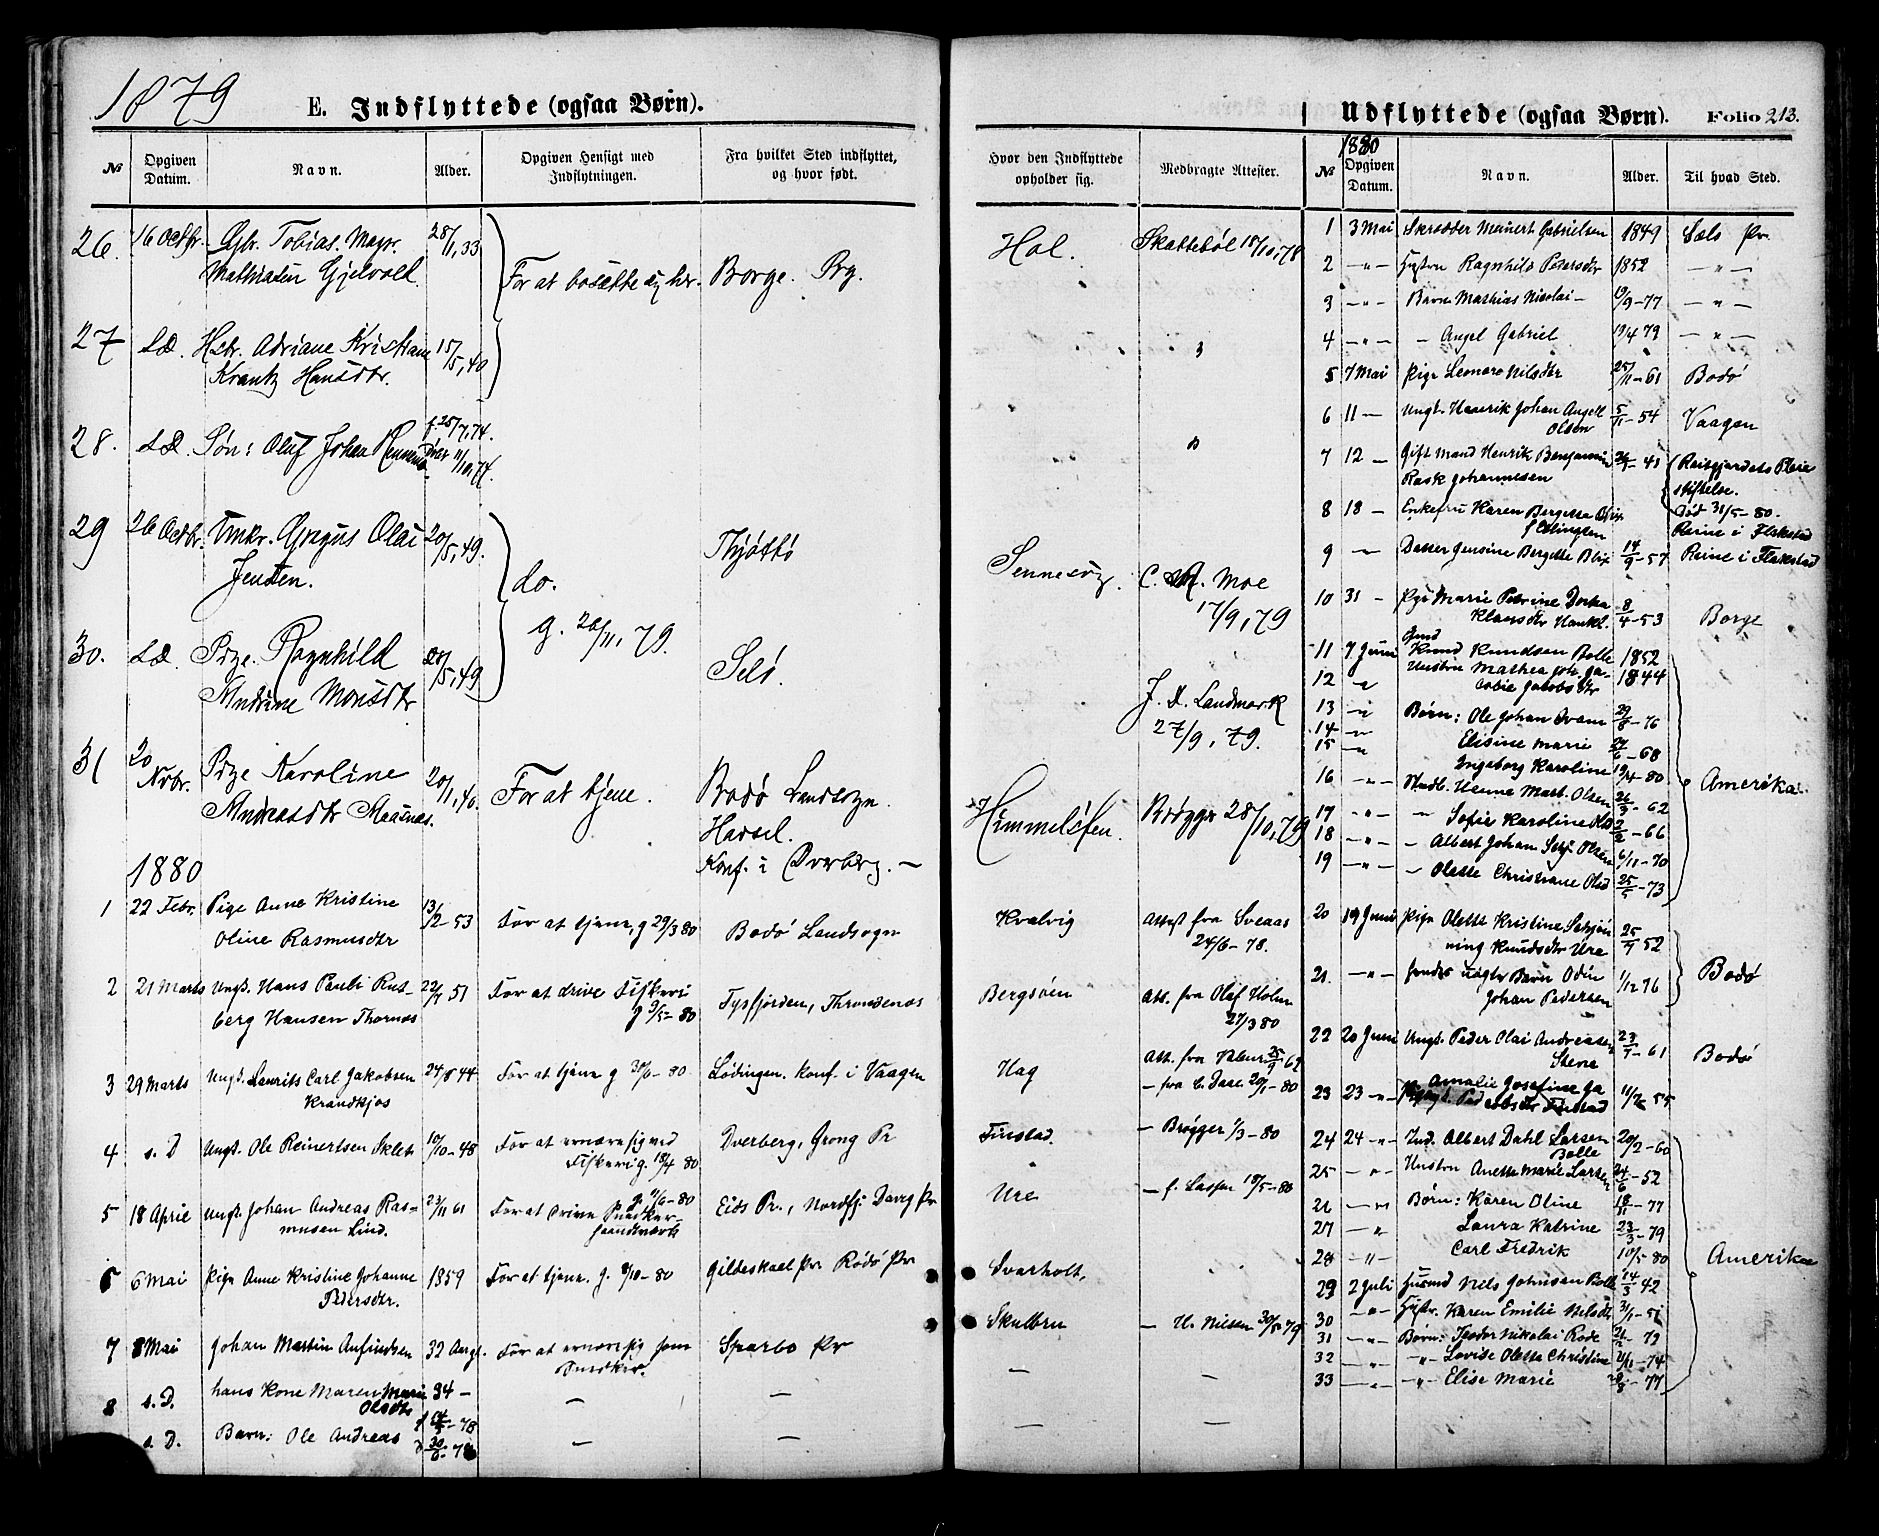 1879
E. Indflyttede (ogsaa Børn).
№ Opgiven Datum. Navn. Alder. Opgiven Hensigt med Indflytningen. Fra hvilket Sted indflyttet, og hvor født.
26. 16 Octbr. Gbr. Tobias. Mayr. 28/1,33
Mathiasen Gjelvold. For at bosætte sig her. Borge. Prg.
27 S.D. Hstr. Adriane Kristiane 15/5,40
Krantz Hansdtr.
28. S.D. Søn: Oluf Johan f. 25/7,74.
29 26 Octbr. Umkr. Olai 20/5,49. Thjøttø
Jensen. do.
g. 26/11,79.
30. S.D. Pige. Ragnhild 20/5,49 Selø.
Andrine Monsdtr
31 20 Nvbr. Pige Karoline 20/1,40. For at tjene. Bodø Landsogn.
Andreasdtr Hassel.
Konf. i Dverberg. —
1880
1 22 Febr. Pige Anne Kristine 13/12-53 For at tjene, g 29/3 80 Bodø Landsogn
Oline Rasmusdtr
2 21 Marts Ungk. Hans Pauli Rus- 22/7 51 For at drive Fiskeri Tysfjorden, Throndenæs
berg Hansen Thornæs g 9/5-80
3 29 Marts Ungk. Laurits Carl Jakobsen 24/8 44 For at tjene g 30/6-80 Lødingen. Konf. i Vaagen
Krandkjos
4 s. D Ungk. Ole Reinertsen Sklet 10/10-48 For at ernære sig ved Dverberg, Grong Pr
Fiskeri g. 18/4 80
5 18 April Ungk. Johan Andreas Ras- 23/11 61 For at drive Eids Pr., Nordfj. Davig Pr
musen Lind. haandværk
6 6 Mai Pige Anne Kristine Johanne 1859 For at tjene. g. 8/10-80 Gildeskaal Pr. Rødø Pr
Pedersdtr.
7 8 Mai Johan Martin Anfindsen 32 Aar gl. For at ernære sig som Sparbo Pr
Snedker.
8 s. D. hans Kone Maren Marie 34 — — —
Olsdtr
s. D. Barn: Ole Andreas — —
Hvor den Indflyttede opholder sig. Medbragte Attester.
Hol. Skattebøl 18/10,78
Sennesvig. C. A. Moe
17/9,79
J. D. Landmark
27/9,79.
Himmelsten. Brøgger 28/10,79
Kvalvig Attest fra Sveaas
24/6-78.
Bergsøen Att. fra Olaf Holm
27/3 80
Hag Att. fra
— fra C. Daae 20/1-80
Finstad. — Brøgger 1/3-80
Ure — f. Lassen 18/5-80
Svarholt,
Skulbru — U. Nielsen 30/5 79
— —
— —
Udflyttede (ogsaa Børn). Folio 213.
1880
№ Opgiven Datum. Navn. Alder. Til hvad Sted.
1 3 Mai Skrædder Meinert Gabrielsen 1849 Sæls Pr.
2 —„— Hustru Ragnhild Pedersdtr 1852 —„—
3 —„— Barn Mathias Nicolai — 19/9-77 —„—
4 —„— — Angel Gabriel 19/4 79 —„—
5 7 Mai Pige Leonore Nilsdtr 25/11-61 Bodø
6 11 — Ungk. Henrik Johan Angell 5/11-54 Vaagan
Olsen
7 12 — Gift Mand Henrik Benjamin 41 Reitgjerdets Pleie
Rask Johannesen stiftelse.
8 18 — Enkefru Karen Bergitte Blix Død 31/5-80.
Reine i Flakstad
9 „— Datter Jensine Bergitte Blix 14/9-57 Reine i Flakstad
10 31 — Pige Marie Petrine Dorthea 8/4-53 Borge
Klausdtr Haukl.
11 7 Juni Knud Knudsen Bolle 1852
12 —„ Hustru Mathea Joh. Ja- 1844
cobie Jakobsdtr
13 —„ Børn: Ole Johan Ivam 29/8-76
14 —„ Elisine Marie 68
15 —„ Ingeborg Karoline 19/4-80
16 —„— Olsen 62 Amerika.
17 —„— — Sofie Karoline Olsd 66
18 —„— — Albert Johan Olsen 6/11-70
19 —„— — Olette Christiane Olsd 25/5-73
20 19 Juni Pige Olette Kristine 25/9 52
ning Knudsdtr Ure
21. —„— hendes uægte Barn Odin 1/12 76 Bodø
Johan Pedersen
22 20 Juni Ungk. Peder Olai Andreasen 23/7-61 Bodø
Stene
23 23 —„— Amalie Josefine Ja 11/12 55
cobsdtr Finstad
24 24 —„— Ind. Albert Dahl Larsen 20/2-60
Bolle
25 —„— Hustru Anette Marie Larsen 24/6-52
26 —„ Børn: Karen Oline 18/11-77
27 —„ Laura Katrine 23/3-79
28 —„ Carl Fredrik 10/5-80 Amerika
29 2 Juli Husmd Nels Johnsen Bolle 14/3 42
30 —„— Hustr. Karen Emilie Nelsdtr 31/1-51
31 —„— Børn: Teodor Nikolai Rode 72
32 —„ —„— Lovise Olette Christine 21/11-74
33 —„ —„— Elise Marie 77